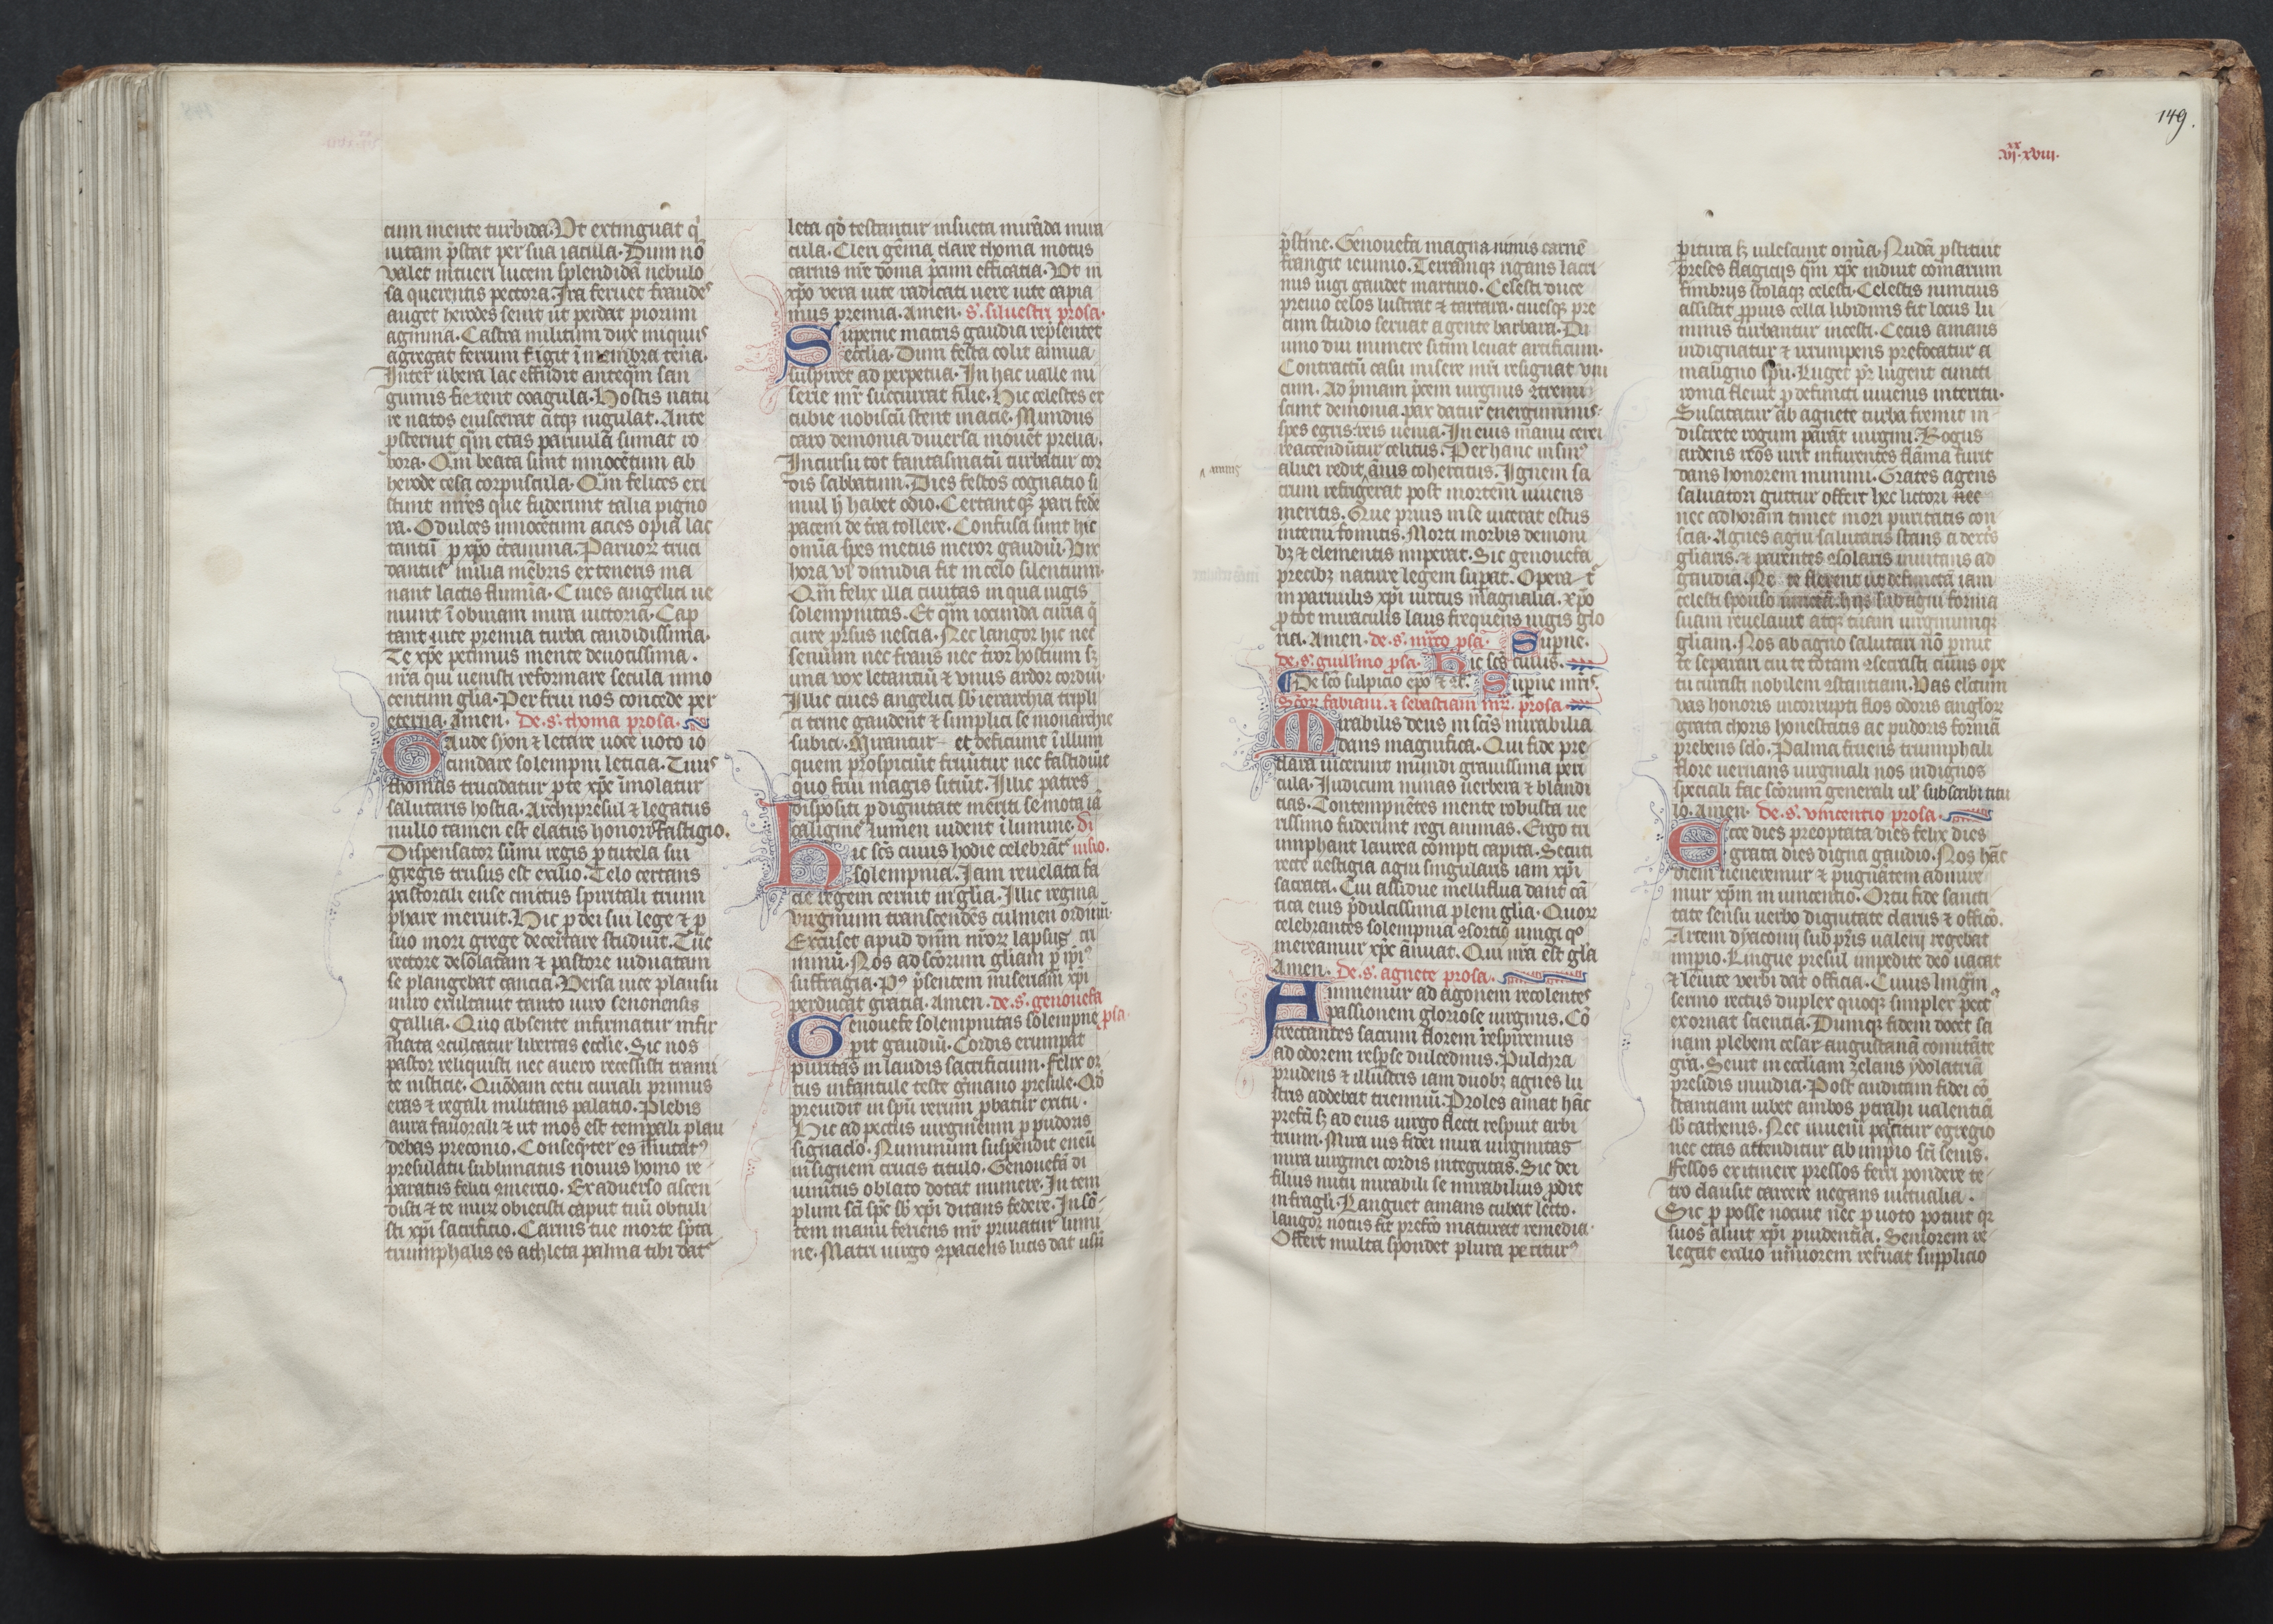 cum mente turbida. Ut extinguat q
uitam p̄stat per sua iacula. Dum nō
valet intueri lucem splendidā nebulo
sa querentis pectora. Ira feruet fraudes
auget herodes seuit ut perdat piorum
agmina. Castra militum dux iniquus
agregat ferrum figit ī membra tēna.
Inter ubera lac effūdit anteqm̄ san
guinis fierent coagula. Hostis natu
re natos euiscerat atqꝫ iugulat. Ante
ꝓsternit qm̄ etas paruula sumat ro
bora. Qm̄ beata sunt innocētum ab
herode cesa corpuscula. Qm̄ felices exi
stunt mr̄es que fuderunt talia pigno
ra. O dulces innocētum acies o pia lac
tantiū ꝑ xp̄o ctamina. Paruorꝝ truci
dantur milia mēbris ex teneris ma
nant lactis flumīa. Ciues angelici ue
niunt ī obuiam mira uictoriā. Cap
tant uite premia turba candidissima.
Te xp̄e petimus mente deuotissima.
nr̄a qui uenisti reformare secula inno
centum gl̄ia. Perfrui nos concede per
eterna. Amen. De. s. thoma prosa.
Gaude syon ⁊ letare uoce uoto io
cundare solempni leticia. Tuus
thomas trucidatur ꝓ te xp̄e īmolatur
salutaris hostia. Archipresul ⁊ legatus
nullo tamen est elatus honoris fastigio.
Dispensator sūmi regis ꝓ tutela sui
gregis trusus est exilio. Telo certans
pastorali ense cinctus spiritali trium
phare meruit. Hic ꝓ dei sui lege ⁊ ꝓ
suo mori grege decertare studuit. Tūc
rectore desolatam ⁊ pastore uiduatam
se plangebat cantia. Versa uice plausu
miro exultauit tanto uiro senonensis
gallia. Quo absente infirmatur infir
mata ꝯculcatur libertas ecclie. Sic nos
pastor reliquisti nec a uero recessisti trami
te iusticie. Quōdam cetu curiali primus
eras ⁊ regali militans palatio. Plebis
aura fauorali ⁊ ut mos est temp̄ali plau
debas preconio. Conseqn̄ter es īmutatꝰ
presulatu sublimatus nouus homo re
paratus felici ꝯmercio. Ex aduerso ascen
disti ⁊ te murꝝ obiecisti caput tuū obtuli
sti xp̄i sacrificio. Carnis tue morte sp̄ta
triumphalis es athleta palma tibi datꝰ
leta qd̄ testantur insueta mirāda mira
cula. Cleri gēma clare thoma motus
carnis nr̄e doma p̄cum efficatia. Vt in
xp̄o vera uite radicati uere uite capia
mus premia. Amen. s. siluestri prosa.
Superne matris gaudia rep̄sentet
ecclia. Dum festa colit annua
suspiret ad perpetua. In hac ualle mi
serie mr̄ succurrat filie. Hic celestes ex
cubie nobiscū stent in acie. Mundus
caro demonia diuersa mouēt prelia.
Incursu tot fantasmatū turbatur cor
dis sabbatum. Dies festos cognatio si
mul h̄ habet odio. Certantqꝫ pari fede
pacem de tr̄a tollere. Confusa sunt hic
omīa spes metus meror gaudiū. Vix
hora vl̄ dimidia fit in celo silentium.
Qm̄ felix illa ciuitas in qua iugis
solempnitas. Et qm̄ iocunda curia q̄
cure prsus nescia. Nec langor hic nec
senium nec fraus nec tror hostium sꝫ
una vox letantiū ⁊ vnus ardor cordiū.
Illic ciues angelici sb̄ ierarchia tripli
ci trine gaudent ⁊ simplici se monarchie
subici. Mirantur et deficiunt ī illum
quem prospiciūt fruūtur nec fastidiūt
quo frui magis sitiūt. Illic patres
dispositi ꝓ dignitate meriti semota iā
caligine lumen uident ī lumine. Di
hic scs̄ cuius hodie celebrātr uisio.
solempnia. Iam reuelata fa
cie regem cernit in gl̄ia. Illic regina
virginum transcendēs culmen ordinū.
Excuset apud dn̄m nrorꝝ lapsus cri
minū. Nos ad sc̄orum gl̄iam ꝑ ip̄iꝰ
suffragia. Pꝰ p̄sentem miseriam xp̄i
perducat gratia. Amen. de. s. genouefa
Genouefe solempnitas solempne psa.
ꝑit gaudiū. Cordis erumpat
puritas in laudis sacrificium. Felix or
tus infantule teste gmano presule. Qd̄
preuidit in spū rerum ꝓbatur exitu.
Hic ad pectus uirgineum ꝓ pudoris
signaclo. Nummum suspendit eneū
insignem crucis titulo. Genouefā di
uinitus oblato dotat munere. In tem
plum sc̄i sp̄c sb̄ xp̄i ditans federe. In sō
tem manū feriens mr̄ priuatur lumi
ne. Matri uirgo ꝯpaciens lucis dat usū
p̄stine. Genouefa magna nimis carnē
frangit ieiunio. Terramqꝫ rigans lacri
mis iugi gaudet martirio. Celesti duce
preuio celos lustrat ⁊ tartara. ciuesqꝫ pre
cum studio seruat a gente barbara. Di
uino diu munere sitim leuat artificum.
Contractū casu misere mr̄i resignat vni
cum. Ad p̄mam p̄cem uirginis ꝯtremi
scunt demonia. pax datur energuminis.
spes egris. reis uenia. In eius manu cerei
reaccendūtur celitus. Per hanc in sinꝰ
aluei redit amnis cohercitus. Ignem sa
crum refrigerat post mortem uiuens
meritis. Que prius in se uicerat estus
interni fomitis. Morti morbis demoni
bꝫ ⁊ elementis imperat. Sic genouefa
precibꝫ nature legem sup̄at. Opera t
in paruulis xp̄i uirtus magnalia. xp̄o
ꝓ tot miraculis laus frequens iugis glo
ria. Amen. de. s. mr̄co psa. Sup̄ne.
de. s. guill'mo psa. Hic scs̄ cuius.
De sc̄o sulpicio ep̄o ⁊ . Sup̄ne mr̄is.
Sc̄orꝝ fabiani. ⁊ sebastiani mr̄. prosa.
Mirabilis deus in sc̄is mirabilia
dans magnifica. Qui fide pre
clara uicerunt mundi grauissima peri
cula. Iudicum minas uerbera ⁊ blandi
cias. Contempnētes mente robusta ue
rissimo fuderunt regi animas. Ergo tri
umphant laurea compti capita. Secuti
recte uestigia agni singularis iam xp̄i
sacrata. Cui assidue melliflua dant cā
tica eius p̄dulcissima pleni gl̄ia. Quorꝝ
celebrantes solempnia ꝯsortio iungi qꝰ
mereamur xp̄e ānuat. Qui nr̄a est gl̄a
Amen. De. s. agnete prosa.
Animemur ad agonem recolentes
passionem gloriose uirginis. Cō
trectantes sacrum florem respiremus
ad odorem resp̄se dulcedinis. Pulchra
prudens ⁊ illustris iam duobꝫ agnes lu
stris addebat triennium. Proles amat hāc
prefcī sꝫ ad eius uirgo flecti respuit arbi
trium. Mira uis fidei mira uirginitas
mira uirginei cordis integritas. Sic dei
filius nutu mirabili se mirabilius ꝓdit
in fragli. Languet amans cubat lecto.
langor notus fit prefco maturat remedia.
Offert multa spondet plura perititurꝰ
ꝑitura sꝫ uilescunt omīa. Nudā ꝓstituit
preses flagiciis qm̄ xp̄c induit comarum
fimbriis stolaqꝫ celesti. Celestis nuncius
assistit ꝓpius cella libidinis fit locus lu
minis turbantur incesti. Cecus amans
indignatur ⁊ irrumpens prefocatur a
maligno spū. Luget pr̄ lugent cuncti
roma fleuit ꝓ defuncti iuuenis interitu.
Suscitatur ab agnete turba fremit in
discrete rogum parat uirgini. Rogus
ardens reos urit in furentes flāma furit
dans honorem numini. Grates agens
saluatori guttur offert hec lictori nec
nec ad horam timet mori puritatis con
scia. Agnes agni salutaris stans a dextris
gl̄iaris. ⁊ parentes ꝯsolaris inuitans ad
gaudia. Ne te flerent ut defunctā iam
celesti sponso iunctā. hijs sub agni forma
suam reuelauit atqꝫ tuam uirginumqꝫ
gl̄iam. Nos ab agno salutari nō ꝑmit
te separari cui te totam ꝯsecrasti cuius ope
tu curasti nobilem ꝯstantiam. Vas elc̄tum
vas honoris incorrupti flos odoris anglorꝝ
grata choris honestatis ac pudoris formā
prebens sclo. Palma fruens triumphali
flore uernans uirginali nos indignos
speciali fac sc̄orum generali ul' subscribi titu
lo. Amen. de. s. vincentio prosa.
Ecce dies preoptata dies felix dies
grata dies digna gaudio. Nos hāc
diem ueneremur ⁊ pugnātem admire
mur xp̄m in uincentio. Ortu fide sancti
tate sensu uerbo dignitate clarus ⁊ officō.
Artem dyaconij sub pr̄is ualerij regebat
imp̄io. Lingue presul impedite deo uacat
⁊ leuite verbi dat officia. Cuius lingm̄
sermo rectus duplex quoqꝫ simplex pectꝰ
exornat scientia. Dumqꝫ fidem docet sa
nam plebem cesar augustanā comitāte
gr̄a. Seuit in eccl̄iam zelans ydolatriā
presidis inuidia. Post auditam fidei cō
stantiam iubet ambos ꝑtrahi ualentiā
sb̄ cathenis. Nec iuueni parcitur egregio
nec etas attenditur ab impio sc̄i senis.
Fessos ex itinere pressos ferri pondere te
tro clausit carcere negans uictualia.
Sic ꝓ posse nocuit nec ꝓ uoto potuit qꝛ
suos aluit xp̄i prudentia. Seniorem re
legat exilio iuniorem reseruat supplicio
149.
.vj.xx xviii.
amnis